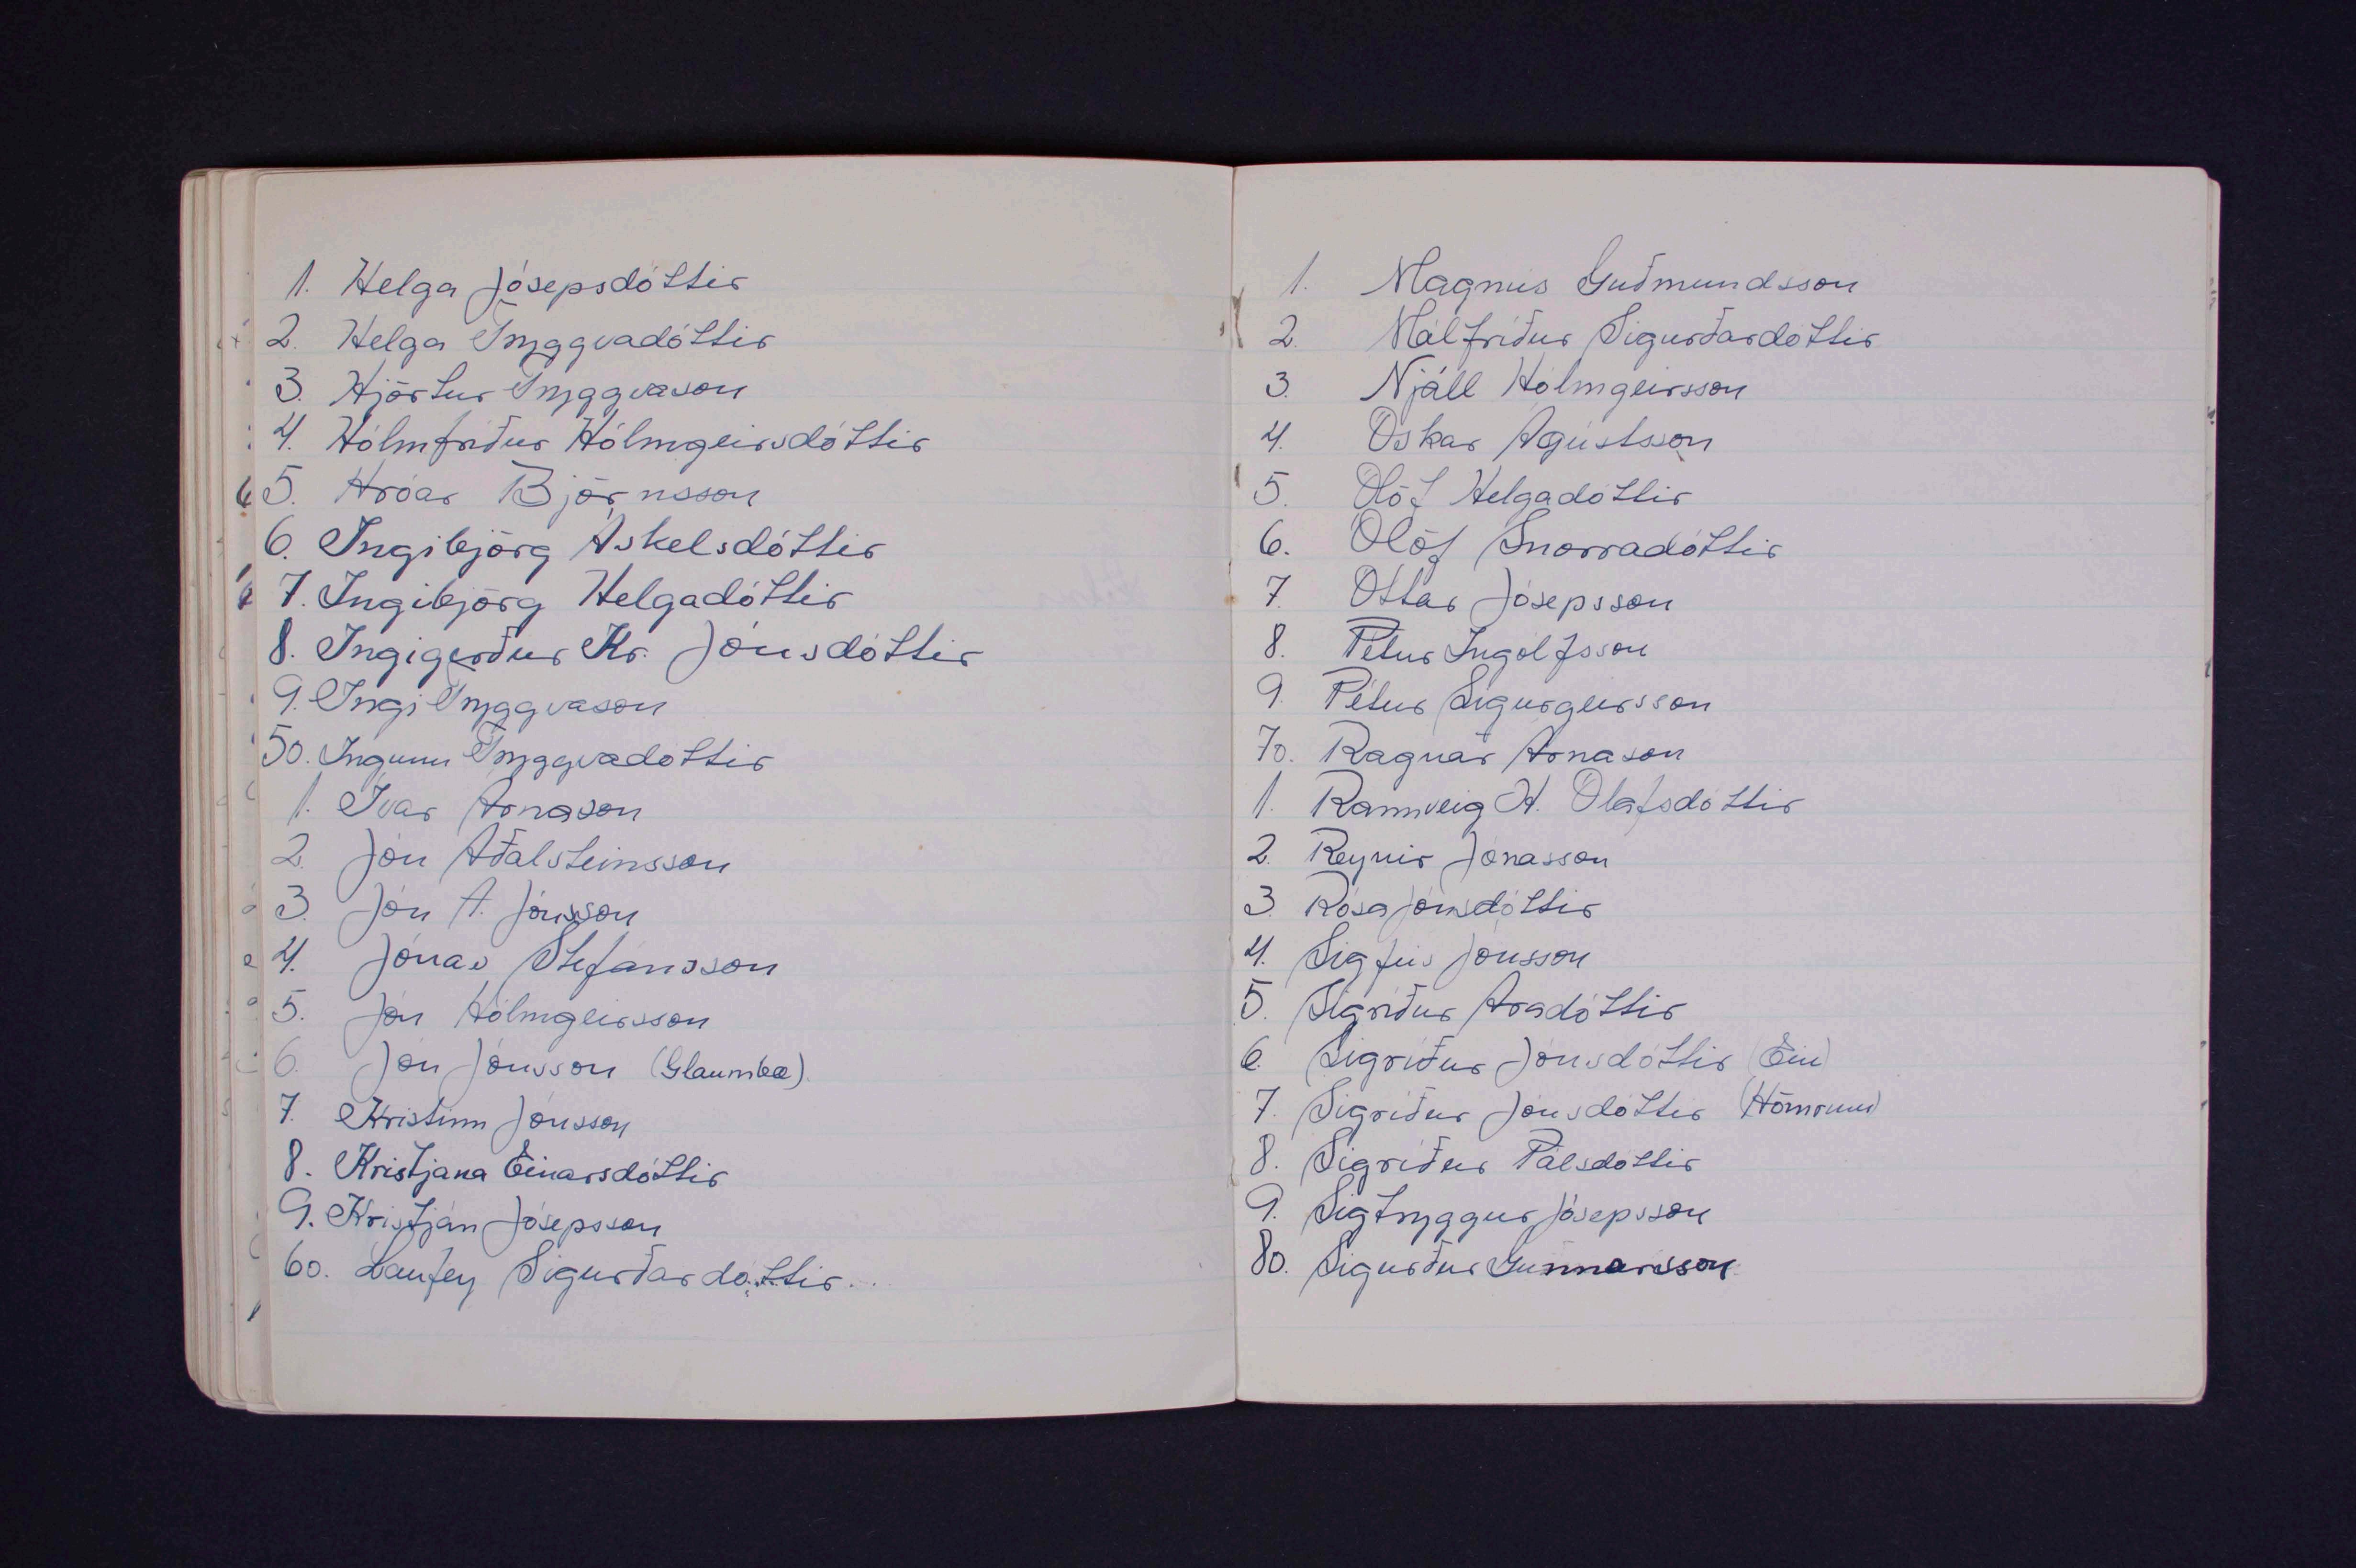 1. Helga Jósepsdóttir
2. Helga Tryggvadóttir
3. Hjörtur Tryggvason
4. Hólmfríður Hólmgeirsdóttir
5. Hróar Björnsson
6. Ingibjörg Áskelsdóttir
7. Ingibjörg Helgadóttir
8. Ingigerður Kr. Jónsdóttir
9. Ingi Tryggvason
50. Ingunn Tryggvadóttir
1. Ívar Árnason
2. Jón Aðalsteinsson
3. Jón A. Jónsson
4. Jónas Stefánsson
5. Jón Hólmgeirsson
6. Jón Jónsson (Glaumbæ).
7. Kristinn Jónsson
8. Kristjana Einarsdóttir
9. Kristján Jósepsson
60. Laufey Sigurðardóttir
1. Magnús Guðmundsson
2. Málfríður Sigurðardóttir
3. Njáll Hólmgeirsson
4. Óskar Ágústsson
5. Ólöf Helgadóttir
6. Ólöf Snorradóttir
7 Óttar Jósepsson
8. Pétur Ingólfsson
9 Pétur Sigurgeirsson
70. Ragnar Árnason
1. Rannveig H. Ólafsdóttir
2. Reynir Jónasson
3. Rósa Jónsdóttir
4. Sigfús Jónsson
5. Sigríður Aradóttir
6 Sigríður Jónsdóttir (Ein)
7. Sigríður Jónsdóttir (Hömrum)
8. Sigríður Pálsdóttir
9. Sigtryggur Jósepsson
80. Sigurður Gunnarsson